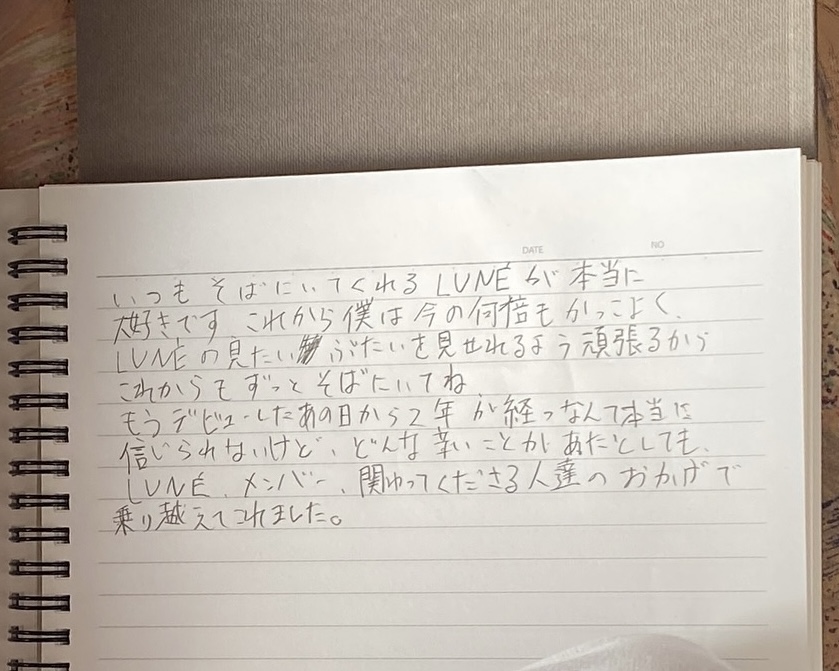 DATE NO
いつも そばにいてくれる LUNÉ が 本当に
大好きです これから 僕は 今の何倍も かっこよく、
LUNÉ の見たい ぶたいを見せれるよう 頑張るから
これからも ずっと そばにいてね
もう デビューしたあの日から 2年 が 経つなんて本当に
信じられないけど、どんな 辛い ことが あたとしても、
LUNÉ、メンバー、関ゆってくださる人達の おかげで
乗り越えてこれました。